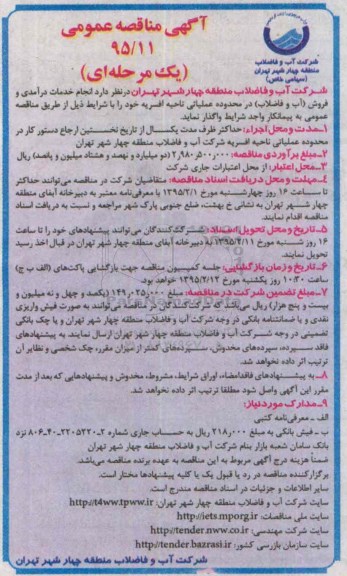 آگهی مناقصه عمومی
۹۵/۱۱
(یک مرحله‌ای)
شرکت آب و فاضلاب
منطقه چهار شهر تهران
(سهامی خاص)
شرکت آب و فاضلاب منطقه چهار شهر تهران درنظر دارد انجام خدمات درآمدی و
فروش (آب و فاضلاب) در محدوده عملیاتی ناحیه افسریه خود را با شرایط ذیل از طریق مناقصه
عمومی به پیمانکار واجد شرایط واگذار نماید.
۱ـ مدت و محل اجراء: حداکثر ظرف مدت یکسال از تاریخ نخستین ارجاع دستور کار در
محدوده عملیاتی ناحیه افسریه شرکت آب و فاضلاب منطقه چهار شهر تهران
۲ـ مبلغ برآوردی مناقصه: ۲٫۹۸۰٫۵۰۰٫۰۰۰ (دو میلیارد و نهصد و هشتاد میلیون و پانصد) ریال
۳ـ محل اعتبار: از محل اعتبارات جاری شرکت
۴ـ مهلت و محل دریافت اسناد مناقصه: متقاضیان شرکت در مناقصه می‌توانند حداکثر
تا ساعت ۱۶ روز چهارشنبه مورخ ۱۳۹۵/۲/۱ با معرفی‌نامه معتبر به دبیرخانه آبفای منطقه
چهار شهر تهران به نشانی خ بهشت، ضلع جنوبی پارک شهر مراجعه و نسبت به دریافت اسناد
مناقصه اقدام نمایند.
۵ـ تاریخ و محل تحویل اسناد: شرکت‌کنندگان می‌توانند پیشنهادهای خود را تا ساعت
۱۶ روز شنبه مورخ ۱۳۹۵/۲/۱۱ به دبیرخانه آبفای منطقه چهار شهر تهران در قبال اخذ رسید
تحویل نمایند.
۶ـ تاریخ و زمان بازگشایی: جلسه کمیسیون مناقصه جهت بازگشایی پاکت‌های (الف ب ج)
ساعت ۱۰:۳۰ روز یکشنبه مورخ ۱۳۹۵/۲/۱۲ خواهد بود.
۷ـ مبلغ تضمین شرکت در مناقصه: مبلغ ۱۴۹٫۰۲۵٫۰۰۰ (یکصد و چهل و نه میلیون و
بیست و پنج هزار) ریال می‌باشد که شرکت کنندگان در مناقصه می‌توانند به صورت فیش واریزی
نقدی و یا ضمانتنامه بانکی در وجه شرکت آب و فاضلاب منطقه چهار شهر تهران و یا چک بانکی
تضمینی در وجه شرکت آب و فاضلاب منطقه چهار شهر تهران ارسال نمایند. به پیشنهادهای
فاقد سپرده، سپرده‌های مخدوش، سپرده‌های کمتر از میزان مقرر، چک شخصی و نظایر آن
ترتیب اثر داده نخواهد شد.
۸ـ به پیشنهادهای فاقدامضاء، اوراق شرایط، مشروط، مخدوش و پیشنهادهایی که بعد از مدت
مقرر این آگهی واصل شود مطلقا ترتیب اثر داده نخواهد شد.
۹ـ مدارک موردنیاز:
الف ـ معرفی‌نامه کتبی
ب ـ فیش بانکی به مبلغ ۲۱۸٫۰۰۰ ریال به حساب جاری شماره ۲ـ۲۲۰۵۲۲۰ـ۴۰ـ۸۰۶ نزد
بانک سامان شعبه بازار بنام شرکت آب و فاضلاب منطقه چهار شهر تهران
ضمناً هزینه درج آگهی مربوط به این مناقصه به عهده برنده مناقصه می‌باشد.
برگزارکننده مناقصه در رد یا قبول یک یا کلیه پیشنهادها مختار است.
سایر اطلاعات و جزئیات در اسناد مناقصه مندرج است.
سایت شرکت آب و فاضلاب منطقه چهار شهر تهران: http://t4ww.tpww.ir
سایت ملی مناقصات: http://iets.mporg.ir
سایت شرکت مهندسی: http://tender.nww.co.ir
سایت سازمان بازرسی کشور: http://tender.bazrasi.ir
شرکت آب و فاضلاب منطقه چهار شهر تهران